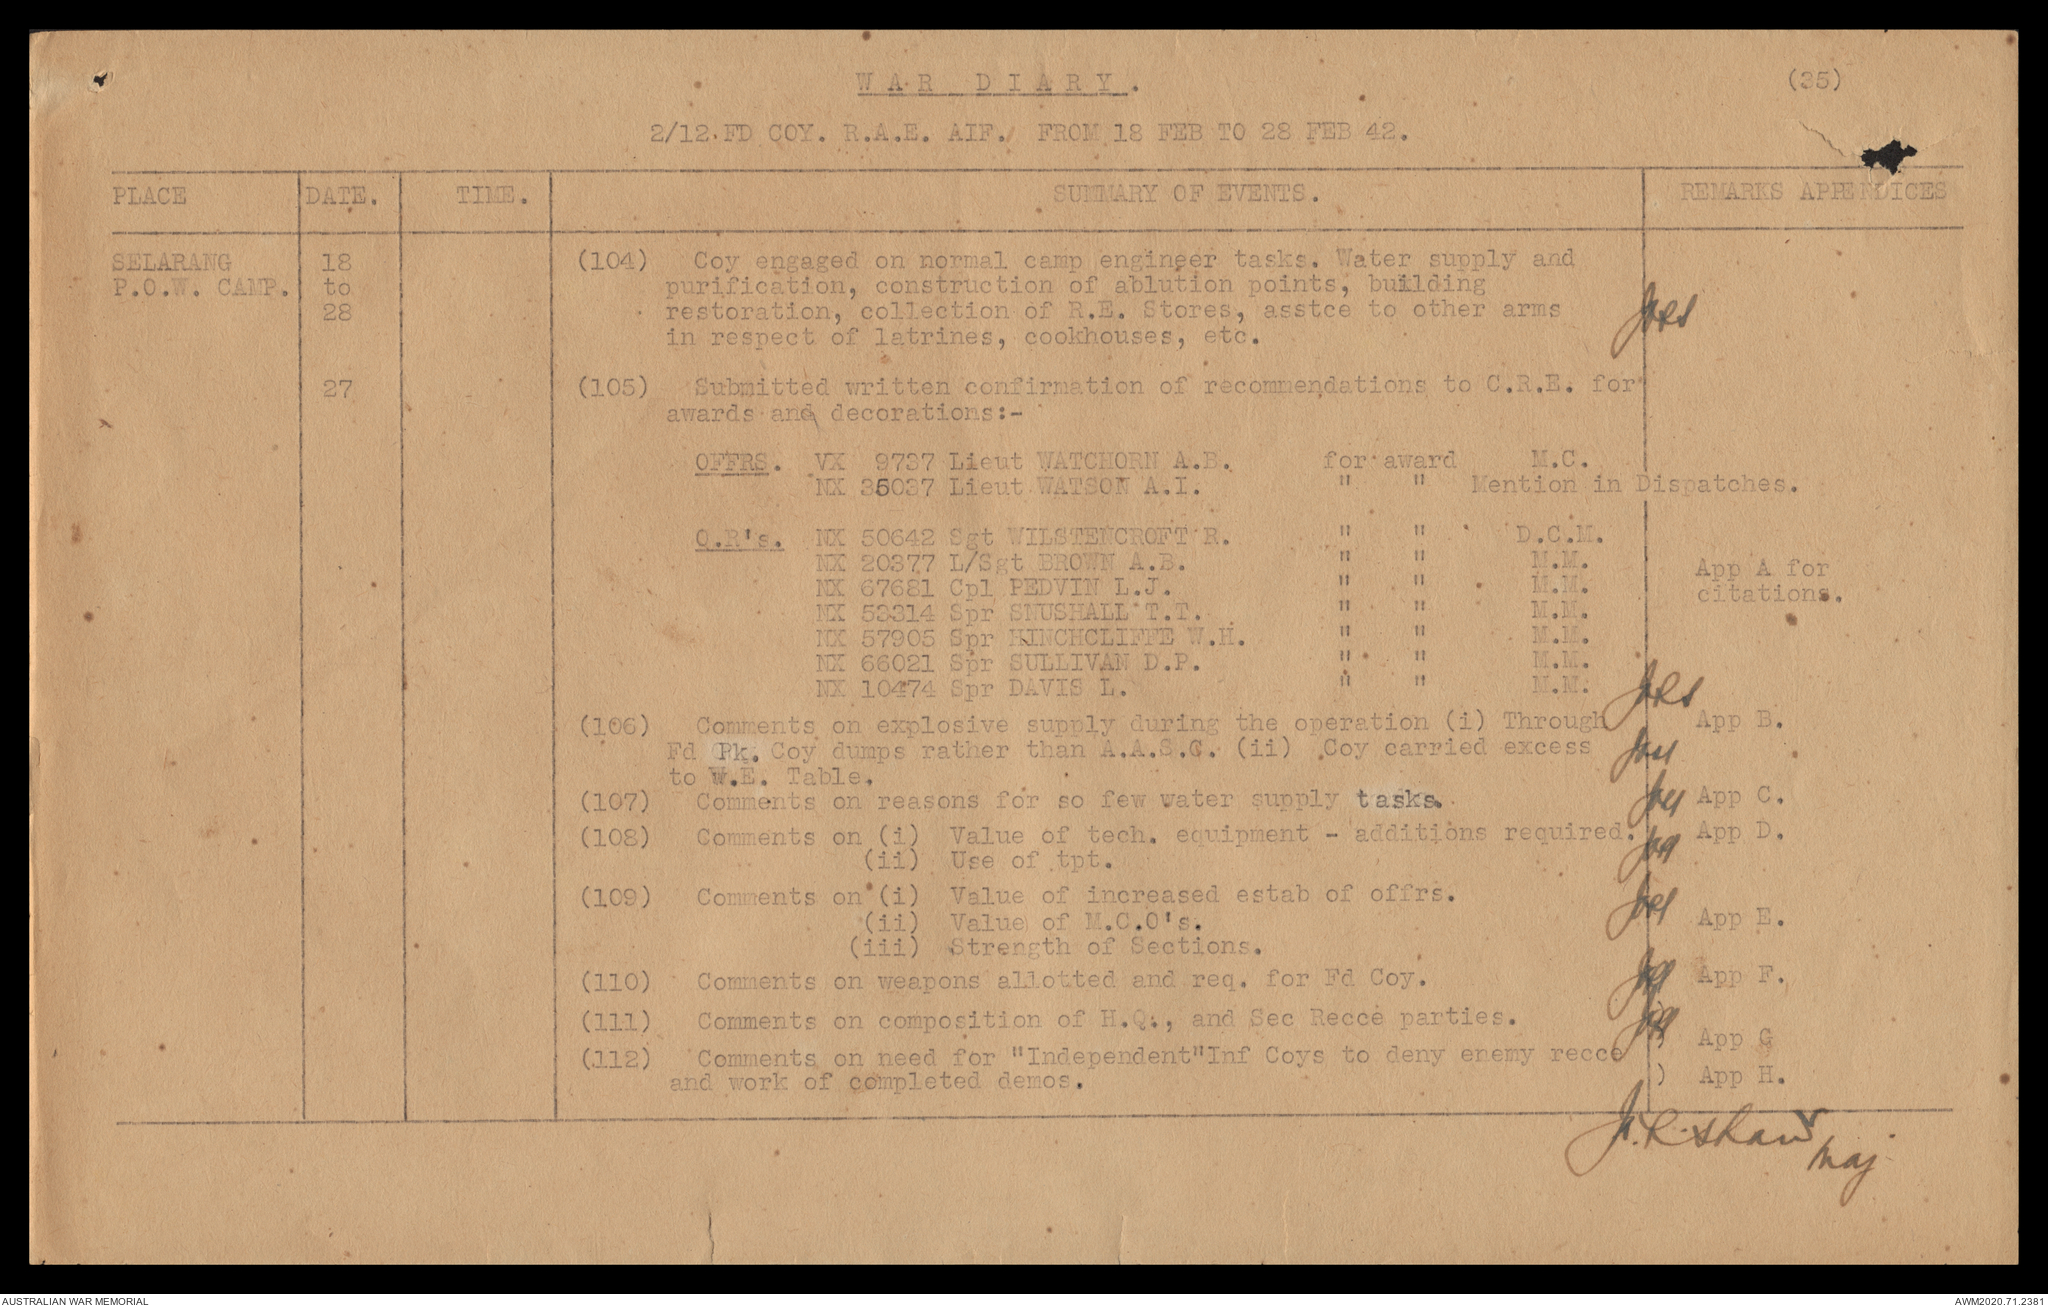 WAR DIARY.
(35)
2/12 FD COY. R.A.E. AIF. FROM 18 FEB TO 28 FEB 42.
PLACE DATE. TIME. SUMMARY OF EVENTS. REMARKS APPENDICES
SELARANG 18 (104) Coy engaged on normal camp engineer tasks. Water supply and
P.O.W. CAMP. to purification, construction of ablution points, building
28 restoration, collection of R.E. Stores, asstce to other arms JRS
in respect of latrines, cookhouses, etc.
27 (105) Submitted written confirmation of recommendations to C.R.E. for
awards and decorations:-
OFFRS. VX 9737 Lieut WATCHORN A.B. for award M.C.
NX 35037 Lieut WATSON A.I. " " Mention in Dispatches.
O.R's. NX 50642 Sgt WILSTENCROFT R. " " D.C.M.
NX 20377 L/Sgt BROWN A.B. " " M.M. App A for
NX 67681 Cpl PEDVIN L.J. " " M.M. citations.
NX 53314 Spr SNUSHALL T.T. " " M.M.
NX 57905 Spr HINCHCLIFFE W.H. " " M.M.
NX 66021 Spr SULLIVAN D.P. " " M.M.
NX 10474 Spr DAVIS L. " " M.M. JRS
(106) Comments on explosive supply during the operation (i) Through App B.
Fd Pk. Coy dumps rather than A.A.S.C. (ii) Coy carried excess JRS
to W.E. Table.
(107) Comments on reasons for so few water supply tasks. JRS App C.
(108) Comments on (i) Value of tech. equipment - additions required. App D.
(ii) Use of tpt. JRS
(109) Comments on (i) Value of increased estab of offrs. JRS
(ii) Value of M.C.O's. App E.
(iii) Strength of Sections.
(110) Comments on weapons allotted and req. for Fd Coy. JRS App F.
(111) Comments on composition of H.Q., and Sec Recce parties. JRS )
) App G
(112) Comments on need for "Independent"Inf Coys to deny enemy recce
and work of completed demos. ) App H.
J.R. Shaw
Maj
AUSTRALIAN WAR MEMORIAL
AWM2020.71.2381